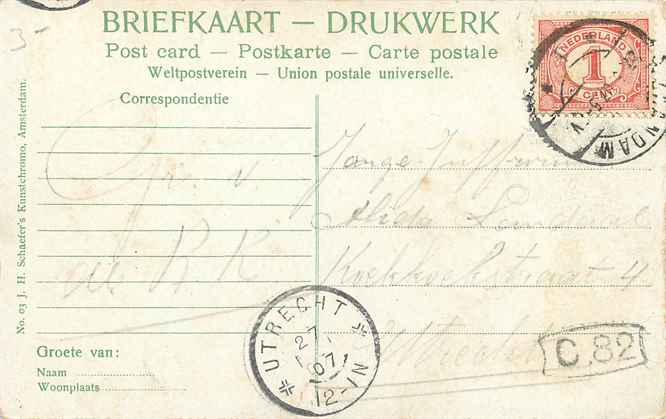 3-
BRIEFKAART — DRUKWERK
Post card — Postkarte — Carte postale
Weltpostverein — Union postale universelle.
NEDERLAND
1
CENT
Correspondentie
Jonge Juffrouw
Alida
4
Utrecht
UTRECHT
27
07
12-1N
C.82
Groete van:
Naam
Woonplaats
No. 03 J. H. Schaefer's Kunstchromo, Amsterdam.